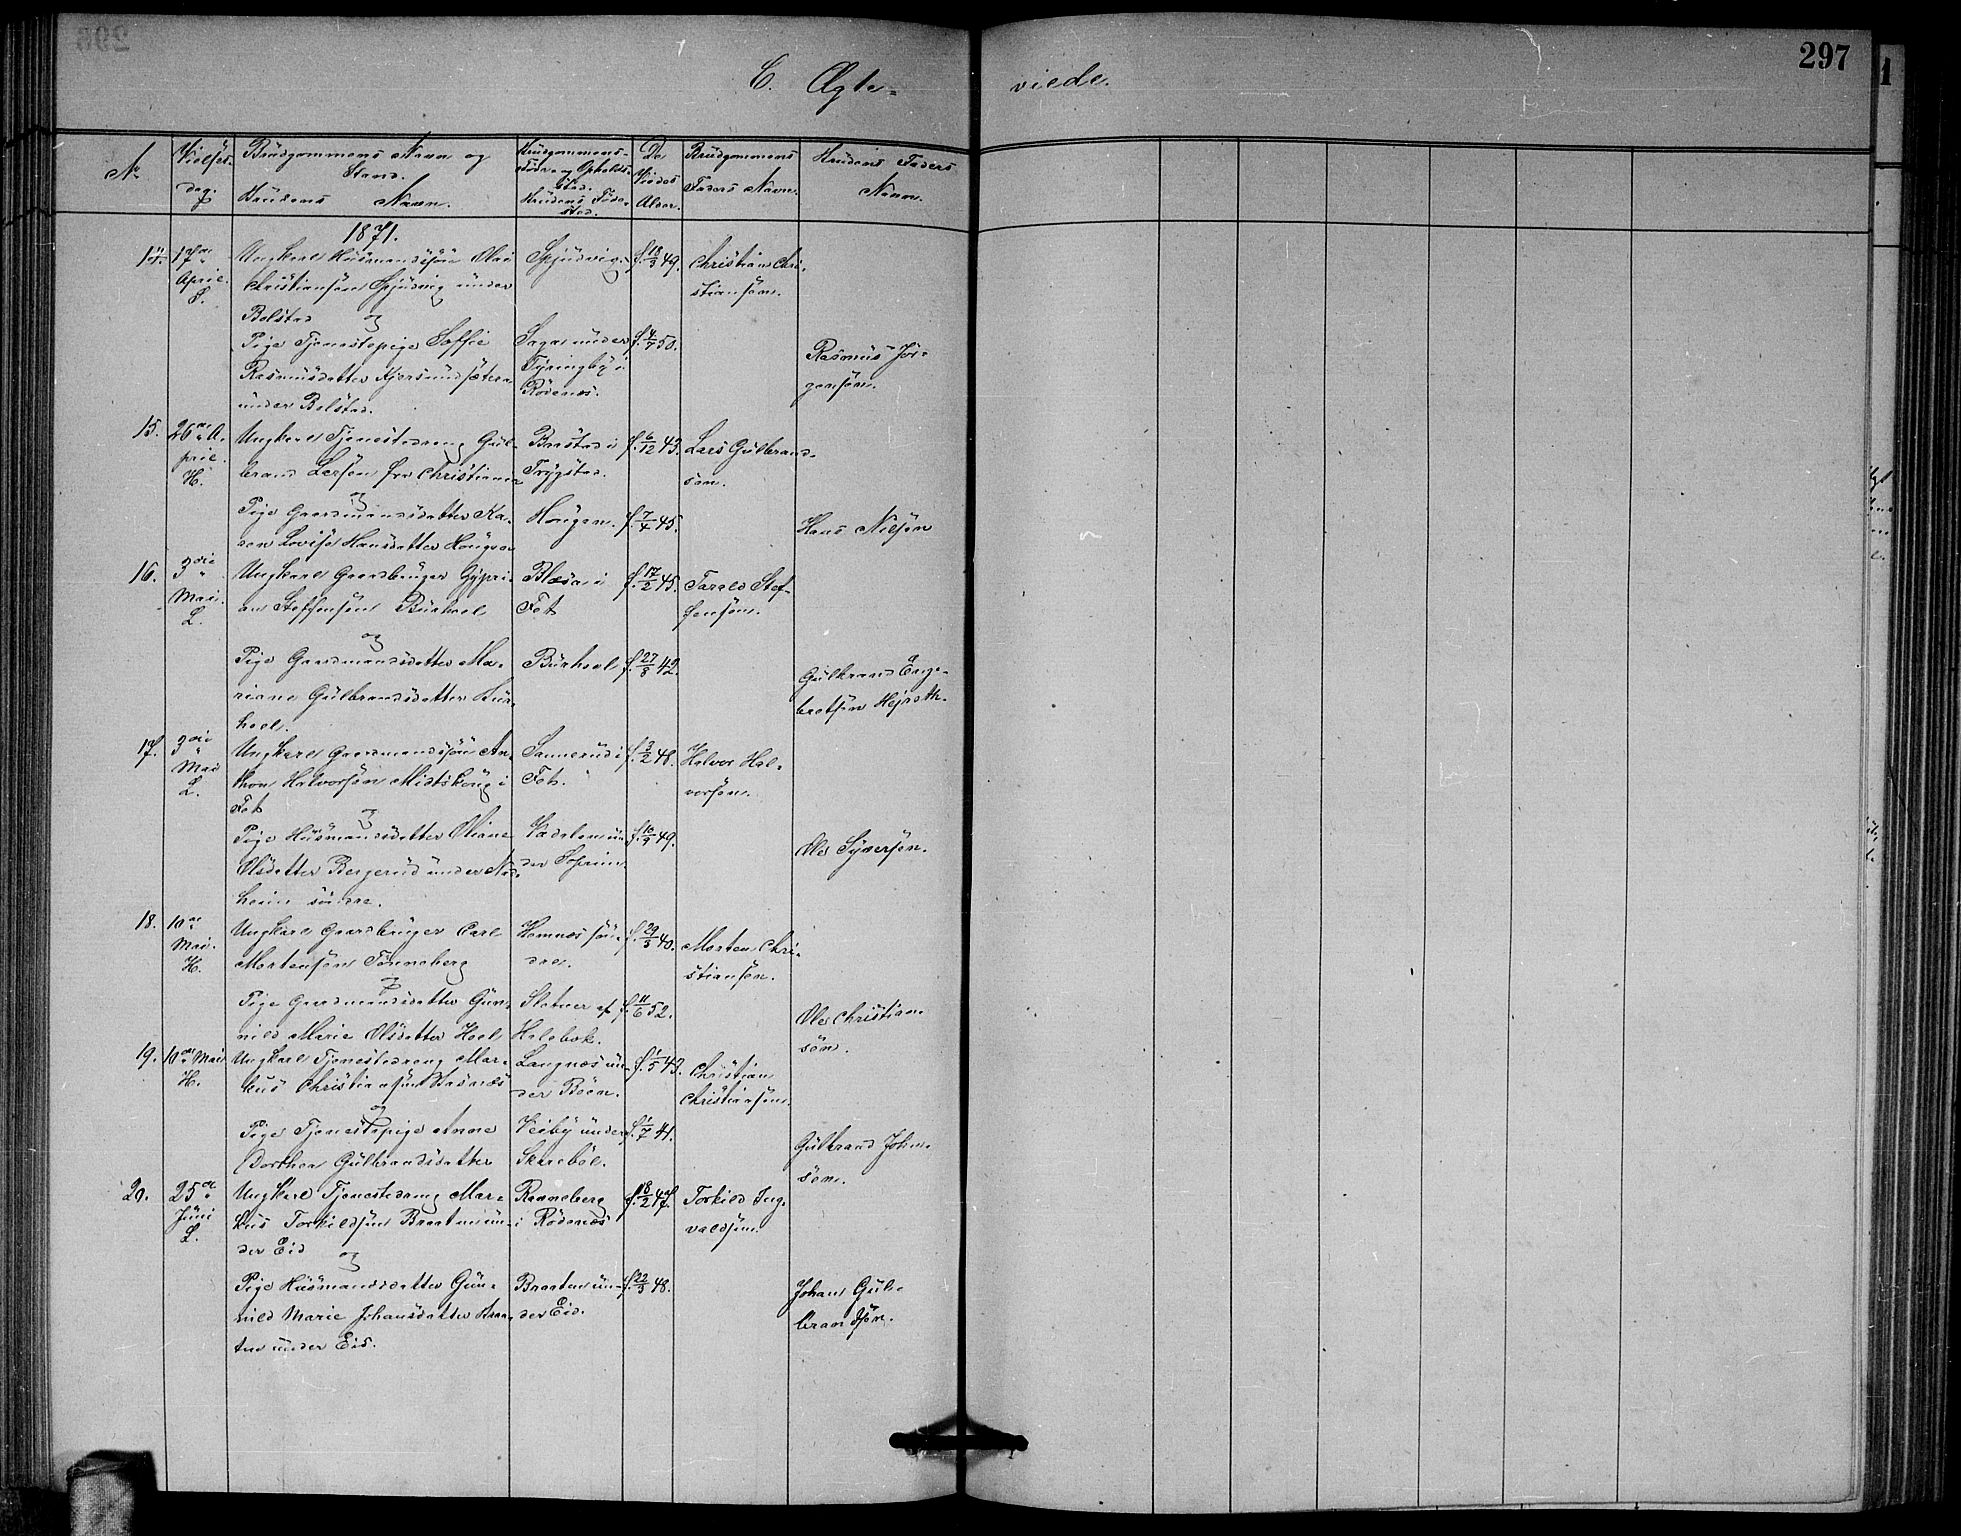 297
C. Ægte-
viede.
No
Vielses-
dag.
Brudgommens Navn og
Stand.
Brudens Navn.
Brudgommens
Føde og Opholds-
sted.
Brudens Føde-
sted.
De
Viedes
Alder.
Brudgommens
Faders Navn.
Brudens Faders
Navn.
1871.
14.
17de
April.
S.
Ungkarl Husmandssøn Olai
Christiansøn Spjudvig under
Bolstad og
Spjudvig.
f. 18/3 49.
Christian Chri-
stiansøn.
Pige Tjenestepige Soffie
Rasmusdatter Kjersundsæteren
under Bolstad.
Sagen under
Tyringby i
Rødenæs.
f. 4/7 50.
Rasmus Jør-
gensøn.
15.
26de A-
pril.
H.
Ungkarl Tjenestedreng Gul-
brand Larsøn fra Christiania
og
Brastad i
Trygstad.
f. 6/12 43.
Lars Gulbrand-
søn.
Pige Gaardmandsdatter Ka-
ren Lovise Hansdatter Hougen
Hougen.
f. 7/4 45.
Hans Nilsøn
16.
3die
Mai.
L.
Ungkarl Gaardbruger Cypri-
an Steffensøn Burhol
og
Blæsa i
Fet
f. 17/2 45.
Tarald Stef-
fensøn.
Pige Gaardmandsdatter Ma-
riane Gulbrandsdatter Bur-
hol.
Burhol
f. 27/8 42.
Gulbrand Enge-
bretsøn
17.
3die
Mai
L.
Ungkarl Gaardmandssøn An-
thon Halvorsøn Midtskoug i
Fet og
Sannerud i
Fet.
f. 3/2 48.
Halvor Hal-
vorsøn.
Pige Husmandsdatter Oliane
Olsdatter Bergerud under
heim søndre.
un-
der
f. 10/9 49.
Ole Syversøn.
18.
10de
Mai.
H.
Ungkarl Gaardbruger Carl
Mortensøn Tønneberg
og
Hemnæs søn-
dre.
f. 29/3 40.
Morten Chri-
stiansøn.
Pige Gaardmandsdatter Gun-
nild Marie Olsdatter Hoel
Slotner af
Holebøk.
f. 11/6 52.
Ole Christian-
søn.
19.
10de Mai
H.
Ungkarl Tjenestedreng Mar-
kus Christiansøn Hasnæs
og
Langnæs un-
der Bøen.
f. 1/5 43.
Christian
Christiansøn.
Pige Tjenestepige Anne
Dorthea Gulbrandsdatter
Veiby under
Skarebøl.
f. 1/7 41.
Gulbrand Johan-
søn.
20.
25de
Juni
L.
Ungkarl Tjenestedreng Mar-
kus Torkildsøn Braaten un-
der Eid og
Ranneberg
i Rødenæs
f. 18/2 47.
Torkild Ing-
valdsøn.
Pige Husmandsdatter Gun-
nild Marie Johansdatter Braa-
ten under Eid.
Braaten un-
der Eid.
f. 22/3 48.
Johan Gul-
brandsøn.